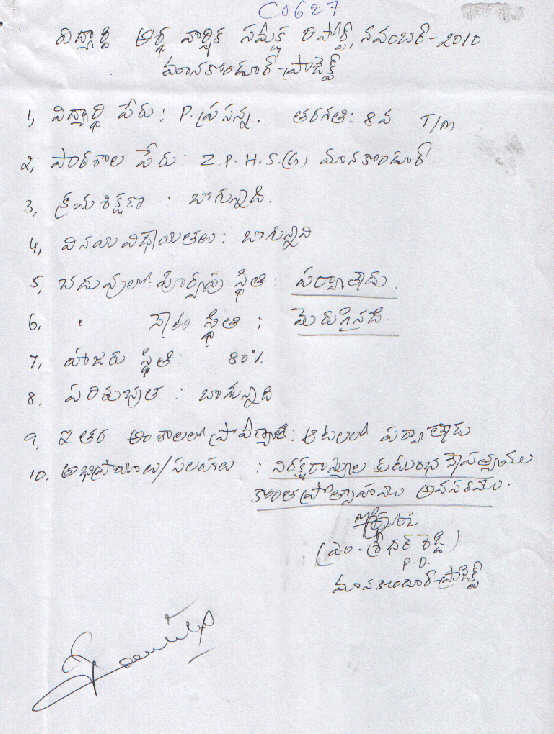 C0627
విద్యార్థి అర్థ వార్షిక సమీక్ష రిపోర్ట్, నవంబర్-2010
మానకొండూర్-ప్రాజెక్ట్
1, విద్యార్థి పేరు: P. ప్రసన్న. తరగతి: 8వ T/m
2, పాఠశాల పేరు: Z.P.H.S.(G) మానకొండూర్
3, క్రమశిక్షణ : బాగున్నది.
4, వినయవిధేయతలు: బాగున్నది
5, చదువులో పూర్వపు స్థితి: పర్వాలేదు.
6. " నేటి స్థితి : మెరుగైనది
7, హాజరు స్థితి 80%
8. పరిశుభ్రత : బాగున్నది
9, ఇతర అంశాలలో ప్రావీణ్యత: ఆటలలో పర్వాలేదు
10. అభిప్రాయాలు/సలహాలు : నిరక్షరాస్యుల కుటుంబ నేపథ్యం
కొంత ప్రోత్సాహము అవసరము.
(ఎం. శ్రీధర్ రెడ్డి)
P.O.
మానకొండూర్-ప్రాజెక్ట్